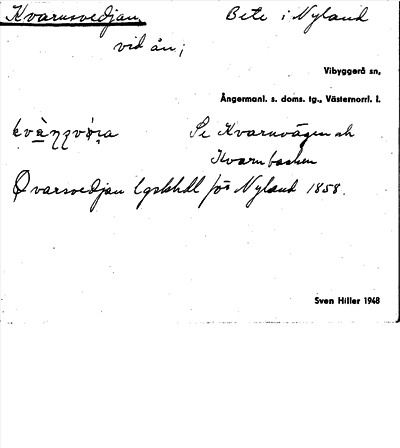 Kvarnsvedjan Bete i Nyland
vid ån;
Vibyggerå sn,
Ångermanl. s. doms. tg., Västernorrl. l.
Se Kvarnvägen och
Kvarnbacken
Qvarsvedjan Lgskhdl för Nyland 1858.
Sven Hiller 1948